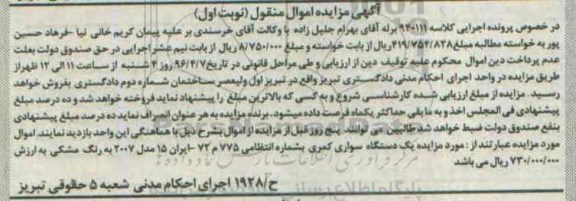 آگهی مزایده اموال منقول (نوبت اول)
در خصوص پرونده اجرایی کلاسه ۹۴۰۱۱۱ برله آقای بهرام جلیل زاده با وکالت آقای خرسندی بر علیه پیمان کریم خانی نیا -فرهاد حسین
پور به خواسته مطالبه مبلغ ۴۱۹/۷۵۴/۸۲۸ ریال از بابت خواسته و مبلغ ۸/۷۵۰/۰۰۰ ریال از بابت نیم عشر اجرایی در حق صندوق دولت بعلت
عدم پرداخت دین اموال محکوم علیه توقیف پس از ارزیابی و طی مراحل قانونی در تاریخ ۹۶/۴/۷ روز ۴ شنبه از ساعت ۱۱ الی ۱۲ ظهر از
طریق مزایده در واحد اجرای احکام مدنی دادگستری تبریز واقع در تبریز اول ولیعصر ساختمان شماره دوم دادگستری بفروش خواهد
رسید. مزایده از مبلغ ارزیابی شده کارشناسی شروع و به کسی که بالاترین مبلغ را پیشنهاد نماید فروخته خواهد شد و ده درصد مبلغ
پیشنهادی فی المجلس اخذ و به مابقی حداکثر یکماه فرصت داده میشود. برنده مزایده به هر عنوان انصراف نماید ده درصد مبلغ پیشنهادی
بنفع صندوق دولت ضبط خواهد شد طالبین می توانند پنج روز قبل از مزایده از اموال بشرح ذیل با هماهنگی این واحد بازدید نمایند. اموال
مورد مزایده عبارتند از: مورد مزایده یک دستگاه سواری کمری بشماره انتظامی ۷۷۵ م ۷۲ -ایران ۱۵ مدل ۲۰۰۷ به رنگ مشکی به ارزش
۷۳۰/۰۰۰/۰۰۰ ریال می باشد
ح/۱۹۲۸ اجرای احکام مدنی شعبه ۵ حقوقی تبریز